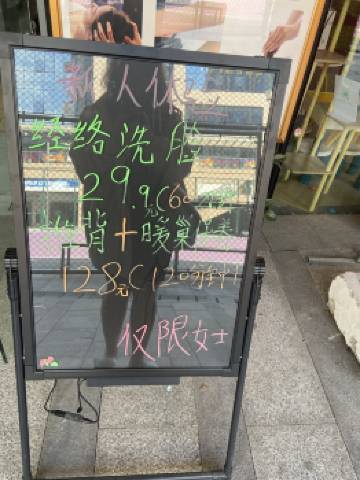 新人体验
经络洗脸
29.9元(60分钟)
背+暖巢
128元(120分钟)
仅限女士